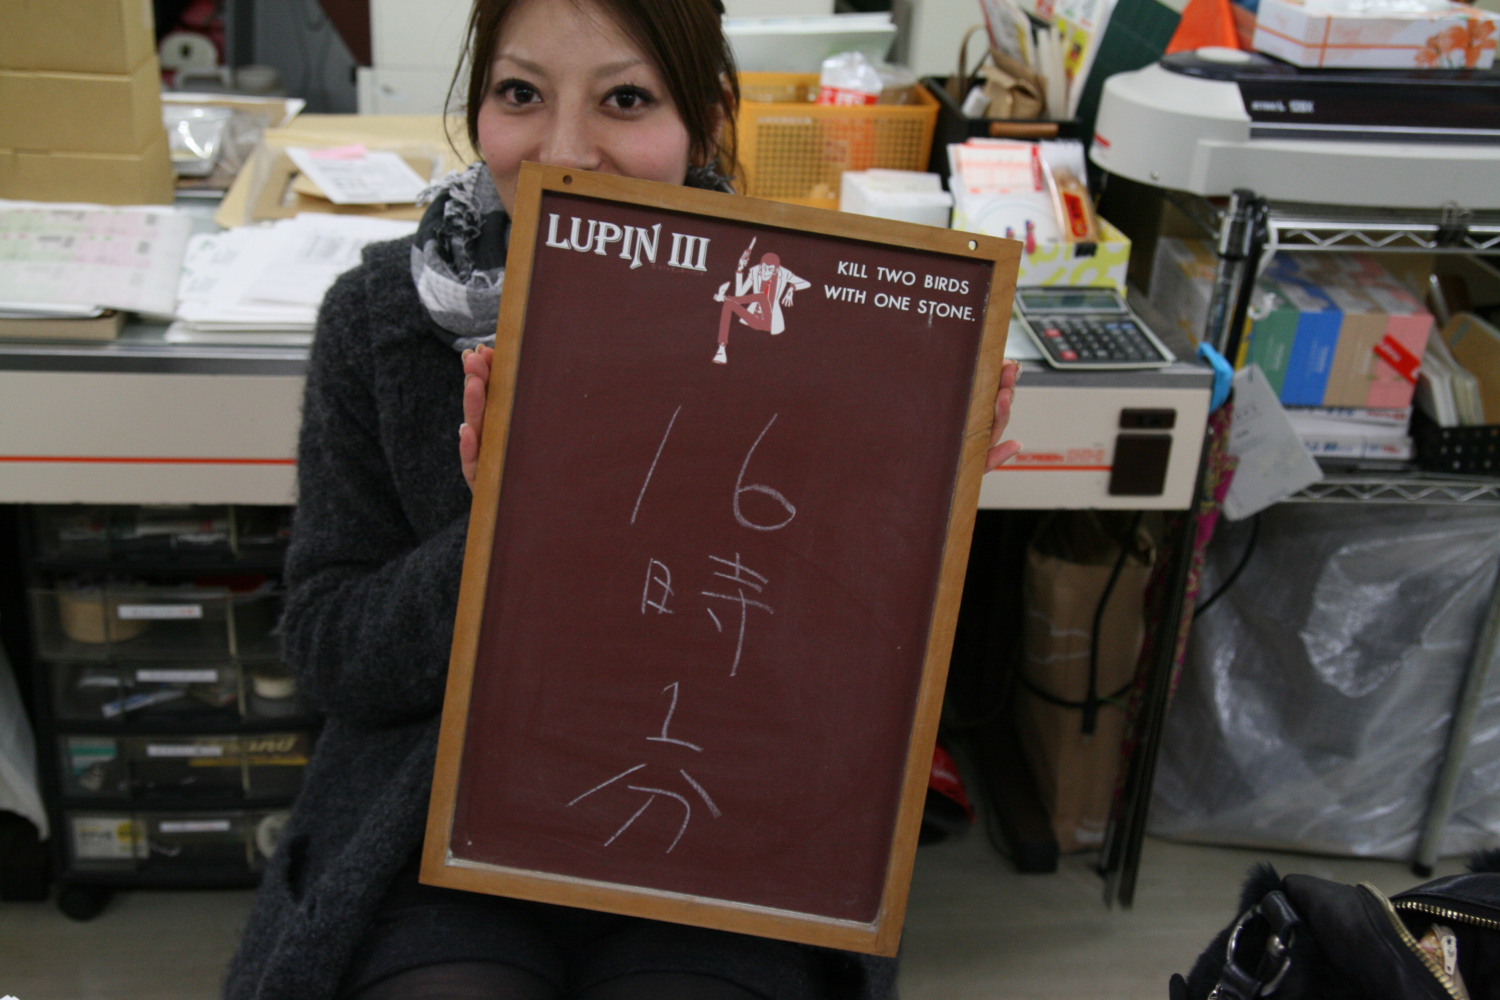 LUPIN III
KILL TWO BIRDS
WITH ONE STONE.
16
時
1
分